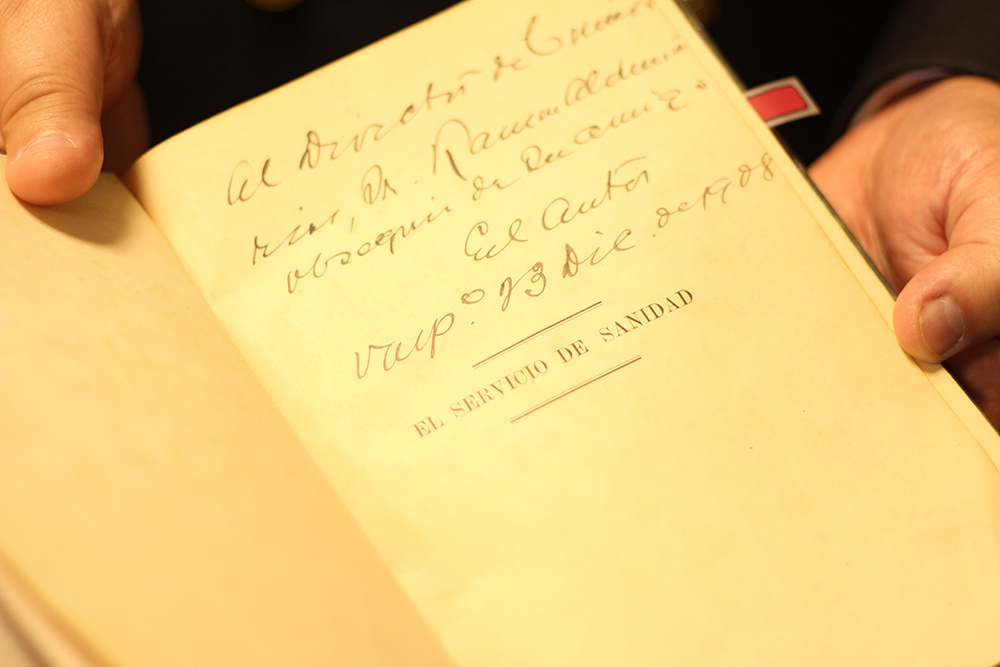 Al Director de
rias, Dr. Ramon Aldunā
obsequio de su amigo
El Autor
Valp.º 23 Dic. de 1908
EL SERVICIO DE SANIDAD